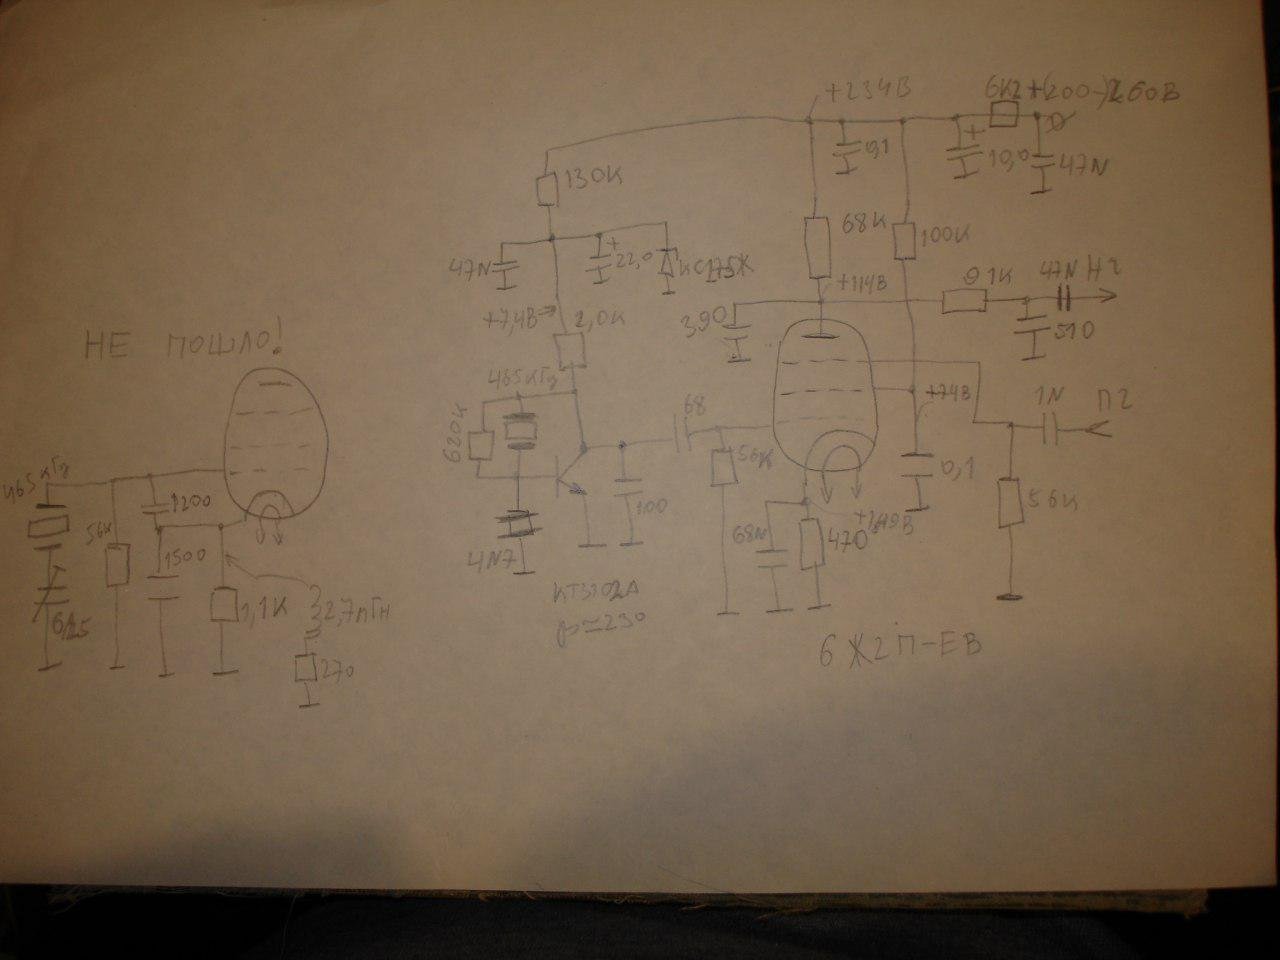 +234В
6К2
+(200-)260В
130К
0,1
10,0
47N
68К
100К
47N
22,0
КС175Ж
+114В
91К
47N
НЧ
+7,4В
2,0К
390
510
НЕ ПОШЛО!
465кГц
620К
68
+74В
1N
ПЧ
465кГц
56К
0,1
1200
100
56К
56К
+1,49В
68N
470
4N7
1500
КТ3102А
β≃230
1,1К
2,7мГн
6/25
270
6Ж2П-ЕВ